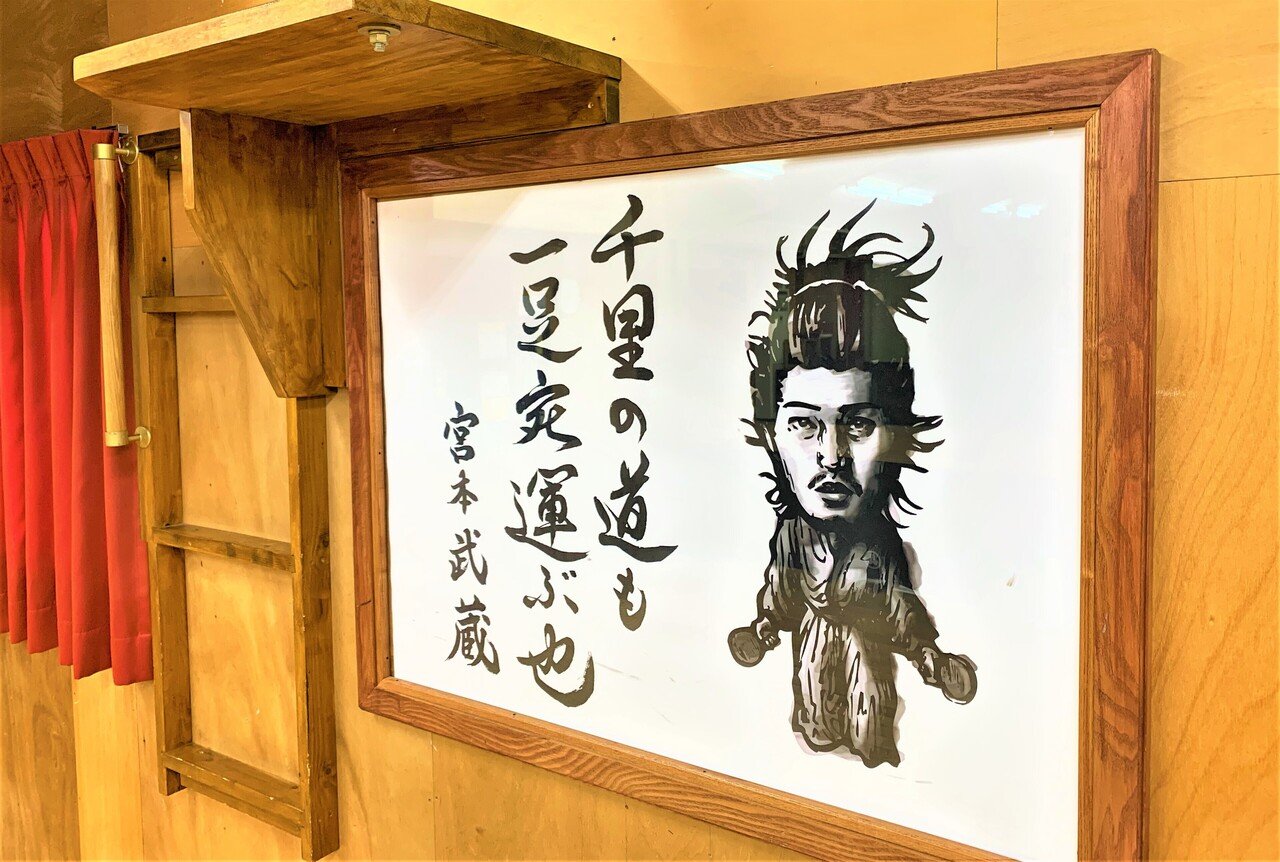 千里の道も
一足宛運ぶ也
宮本武蔵